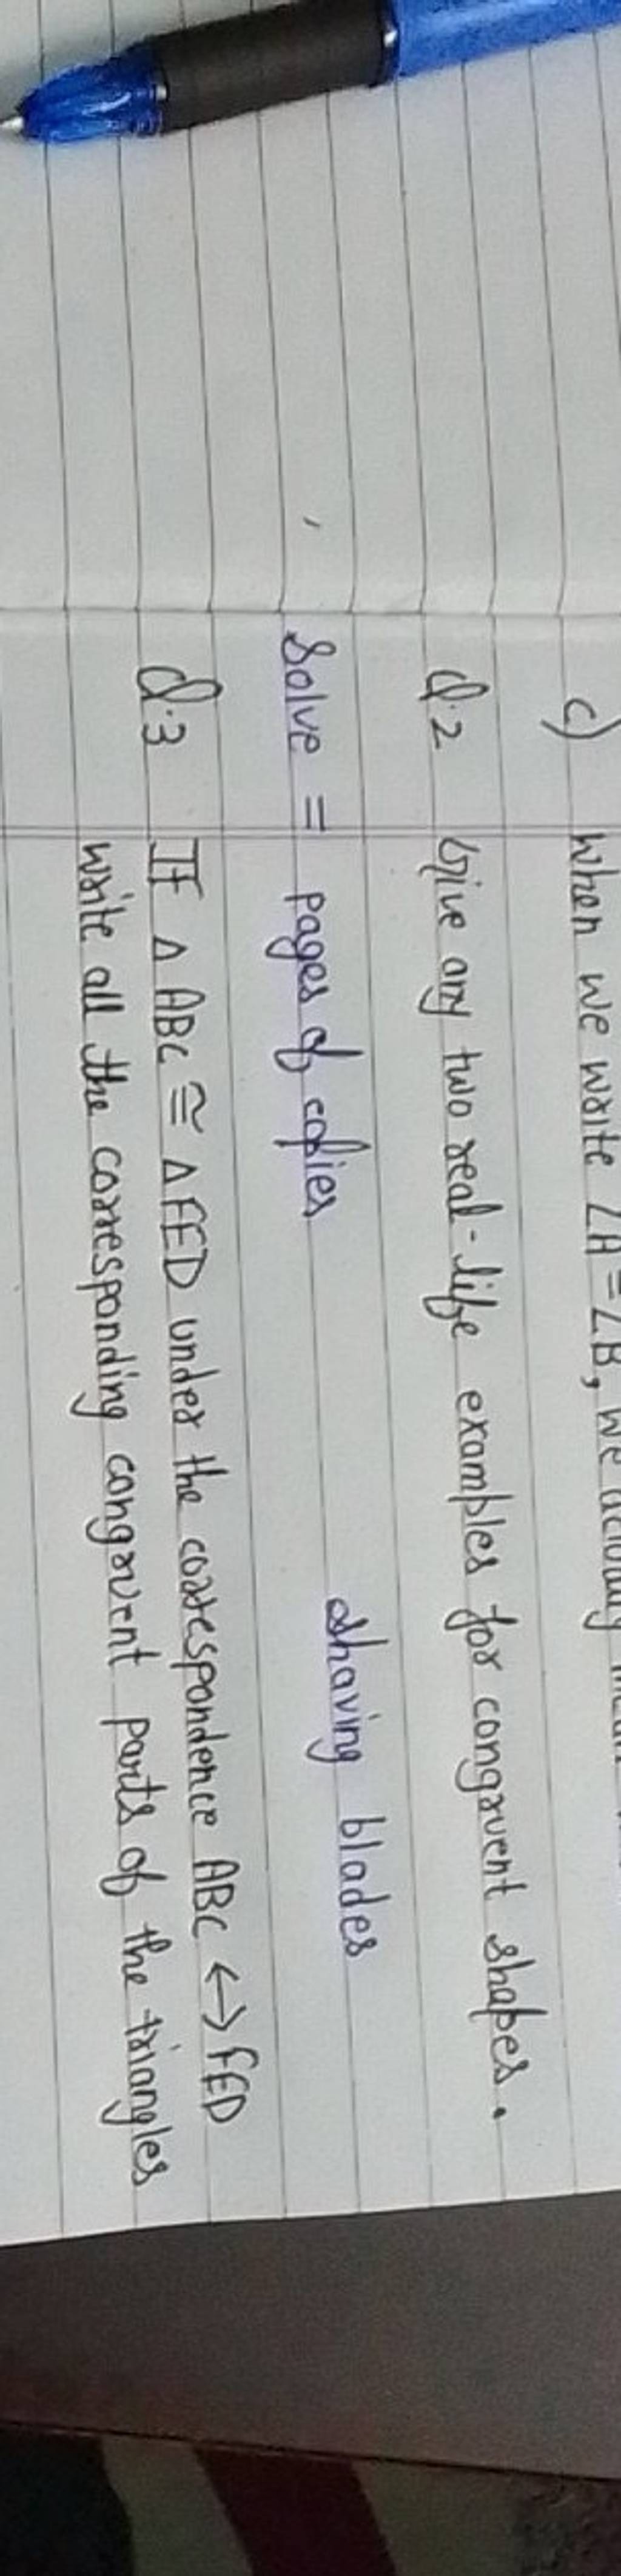 c) When we write ∠A = ∠B, we
Q.2 Give any two real-life examples for congruent shapes.
Solve = pages of copies shaving blades
Q.3 If △ ABC ≅ △ FED under the correspondence ABC ↔ FED
write all the corresponding congruent parts of the triangles